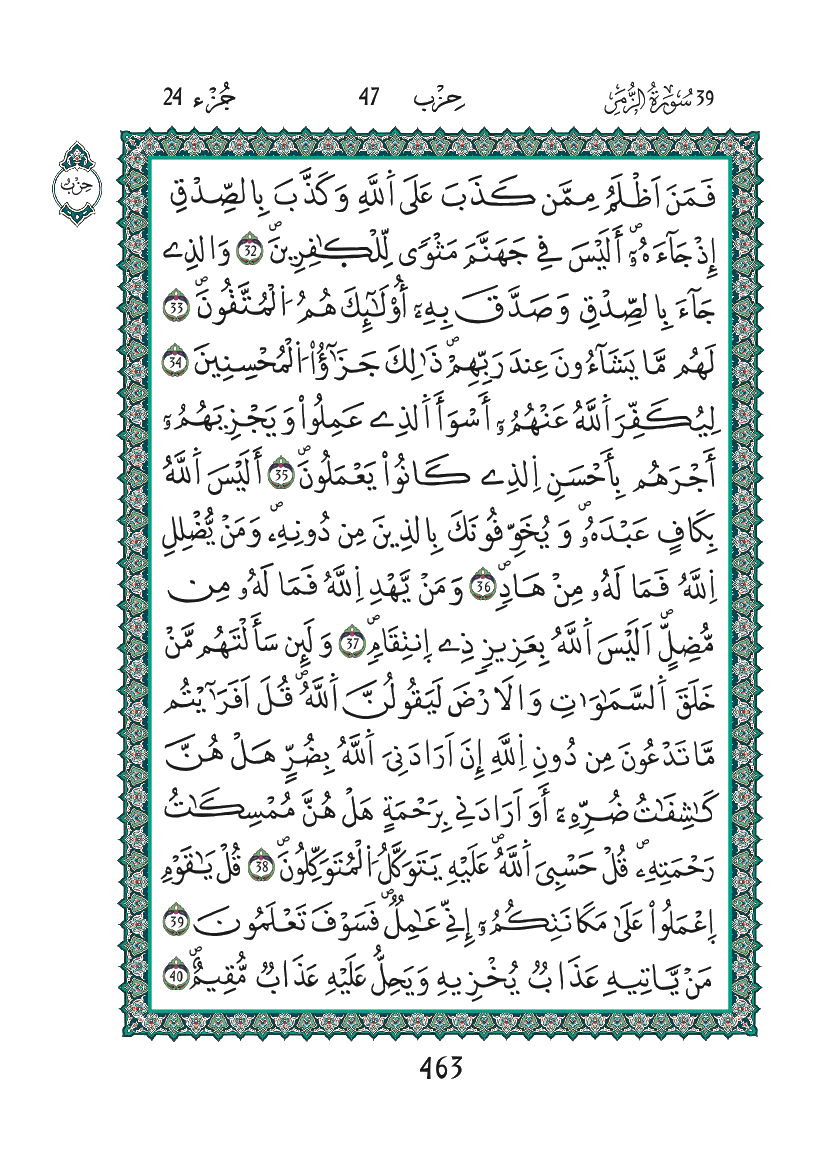 39 سُورَةُ الزُّمَرِ حِزْب 47 جُزْء 24
حِزْبُ
فَمَنَ اَظْلَمُ مِمَّن كَذَبَ عَلَى اَ۬للَّهِ وَكَذَّبَ بِالصِّدْقِ
إِذْ جَآءَهُۥٓۖ أَلَيْسَ فِے جَهَنَّمَ مَثْوىٗ لِّلْكٰ۪فِرِينَۖ 32 وَالذِے
جَآءَ بِالصِّدْقِ وَصَدَّقَ بِهِۦٓ أُوْلَٰٓئِكَ هُمُ اُ۬لْمُتَّقُونَۖ 33
لَهُم مَّا يَشَآءُونَ عِندَ رَبِّهِمْۖ ذَٰلِكَ جَزَٰٓؤُاْ اُ۬لْمُحْسِنِينَ 34
لِيُكَفِّرَ اَ۬للَّهُ عَنْهُمُۥٓ أَسْوَأَ اَ۬لذِے عَمِلُواْ وَيَجْزِيَهُمُۥٓ
أَجْرَهُم بِأَحْسَنِ اِ۬لذِے كَانُواْ يَعْمَلُونَۖ 35 أَلَيْسَ اَ۬للَّهُ
بِكَافٍ عَبْدَهُۥۖ وَيُخَوِّفُونَكَ بِالذِينَ مِن دُونِهِۦۖ وَمَنْ يُّضْلِلِ
اِ۬للَّهُ فَمَا لَهُۥ مِنْ هَادٖۖ 36 وَمَنْ يَّهْدِ اِ۬للَّهُ فَمَا لَهُۥ مِن
مُّضِلٍّۖ اَلَيْسَ اَ۬للَّهُ بِعَزِيزٖ ذِے اِ۪نتِقَامٖۖ 37 وَلَئِن سَأَلْتَهُم مَّنْ
خَلَقَ اَ۬لسَّمَٰوَٰتِ وَالَارْضَ لَيَقُولُنَّ اَ۬للَّهُۖ قُلَ اَفَرَآيْتُم
مَّا تَدْعُونَ مِن دُونِ اِ۬للَّهِ إِنَ اَرَادَنِيَ اَ۬للَّهُ بِضُرٍّ هَلْ هُنَّ
كَٰشِفَٰتُ ضُرِّهِۦٓ أَوَ اَرَادَنِے بِرَحْمَةٍ هَلْ هُنَّ مُمْسِكَٰتُ
رَحْمَتِهِۦۖ قُلْ حَسْبِيَ اَ۬للَّهُۖ عَلَيْهِ يَتَوَكَّلُ اُ۬لْمُتَوَكِّلُونَۖ 38 قُلْ يَٰقَوْمِ
اِ۪عْمَلُواْ عَلَىٰ مَكَانَتِكُمُۥٓ إِنِّے عَٰمِلٞۖ فَسَوْفَ تَعْلَمُونَ 39
مَنْ يَّاتِيهِ عَذَابٞ يُخْزِيهِ وَيَحِلُّ عَلَيْهِ عَذَابٞ مُّقِيمٌۖ 40
463